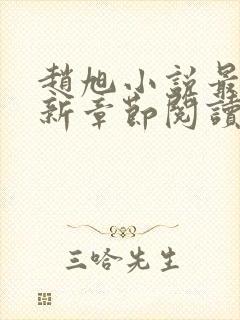 趙旭小說最
新章節閱讀
三哈先生